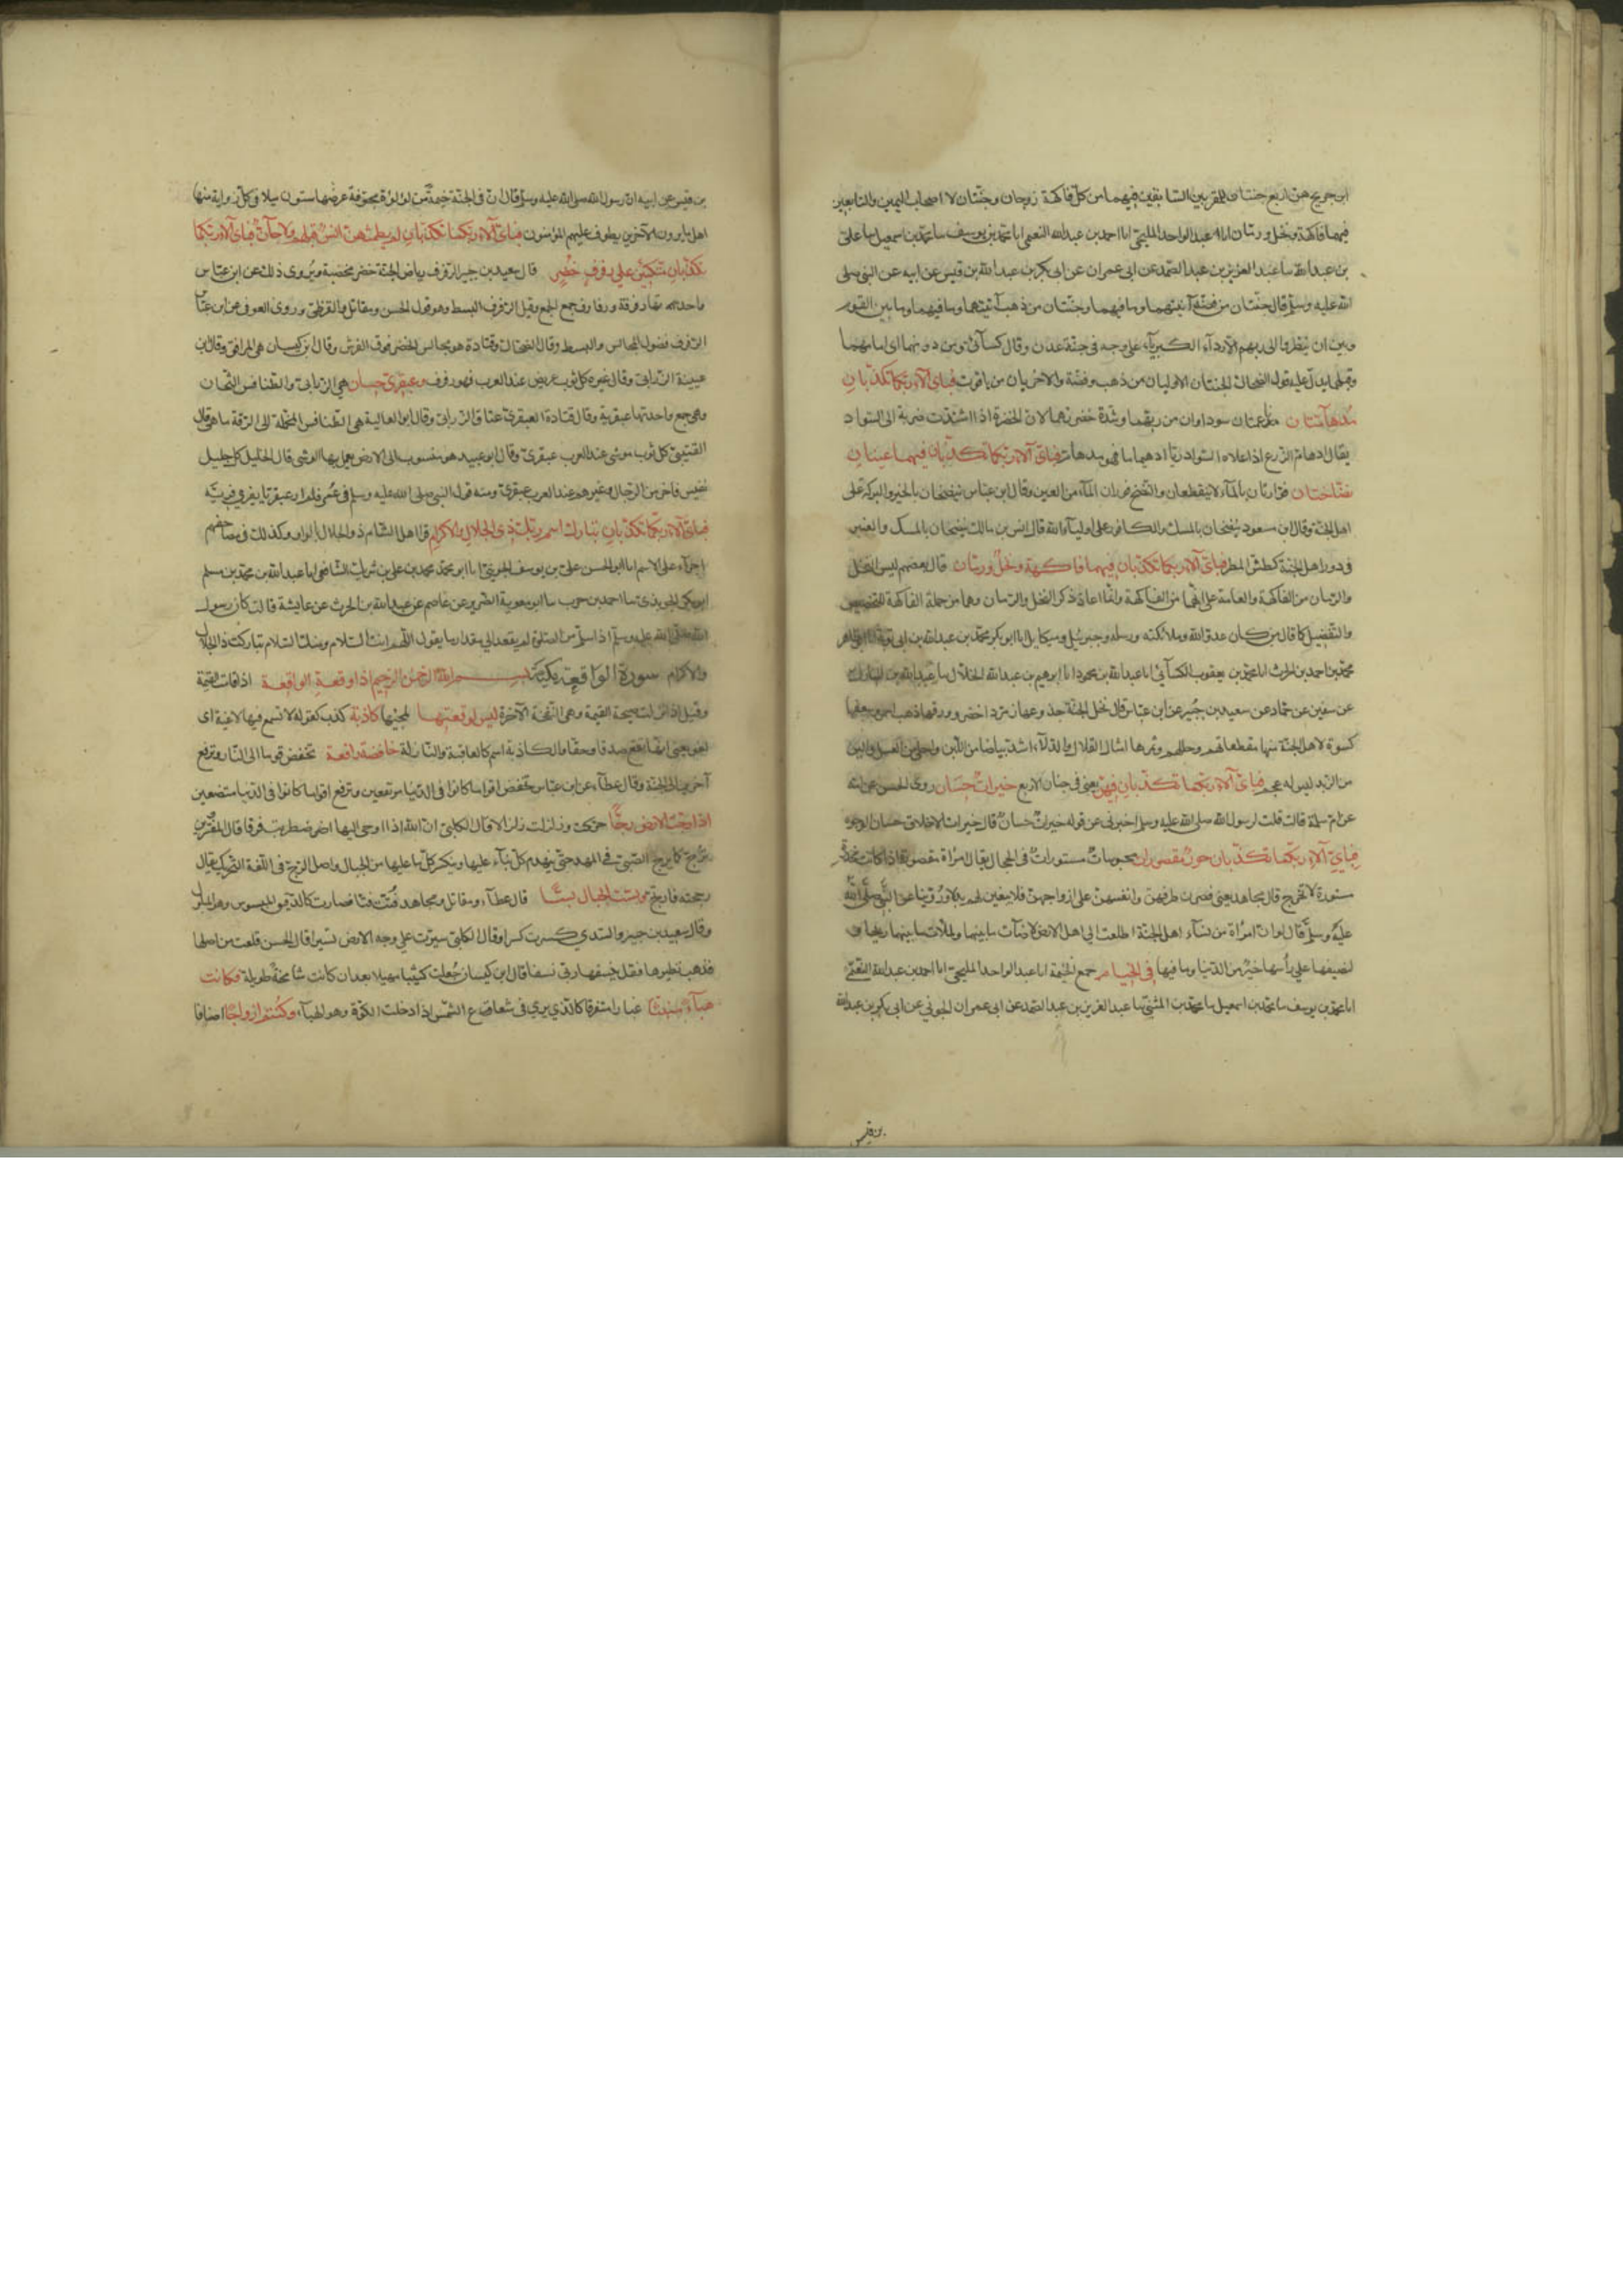 ابن جريج هن اربع جنتان للمقربين السابقين فيهما من كل فاكهة زوجان وجنتان لا اصحاب اليمين والتابعين
فيهما فاكهة ونخل ورمان انا عبد الواحد المليحى انا احمد بن عبد الله النعيمى انا محمد بن يوسف سا محمد بن اسمعيل سا على
بن عبد الله سا عبد العزيز بن عبد الصمد عن ابى عمران عن ابى بكر بن عبد الله بن قيس عن ابيه عن النبى صلى
الله عليه وسلم قال جنتان من فضة آنيتهما وما فيهما وجنتان من ذهب آنيتهما وما فيهما وما بين القوم
وبين ان ينظروا الى ربهم الا ردآء الكبريآء على وجهه فى جنة عدن وقال كسآئى ومن دونهما اى امامهما
وقبلهما يدل عليه قول الضحاك الجنتان الاوليان من ذهب وفضة والاخريان من ياقوت فباى آلاء ربكما تكذبان
مدهآمتان ناعمتان سوداوان من ريهما وشدة خضرتهما لان الخضرة اذا اشتدت ضربة الى السواد
يقال ادهام الزرع اذا علاه السواد ريا ادهيماما فهو مدهام فباى آلاء ربكما تكذبان فيهما عينان
نضاختان فوارتان بالمآء لا ينقطعان والنضخ فوران المآء من العين وقال ابن عباس ينضخان بالخير والبركة على
اهل الجنة وقال ابن مسعود ينضخان بالمسك والكافور على اوليآء الله قال انس بن مالك ينضخان بالمسك والعنبر
فى دور اهل الجنة كطش المطر فباى آلاء ربكما تكذبان فيهما فاكهة ونخل ورمان قال بعضهم ليس النخل
والرمان من الفاكهة والعامة على انهما من الفاكهة وانما اعاد ذكر النخل والرمان وهما من جملة الفاكهة للتخصيص
والتفضيل كما قال من كان عدوا لله وملائكته ورسله وجبريل وميكايل انا ابو بكر محمد بن عبد الله بن ابى توبة انا ابو طاهر
محمد بن احمد بن الحرث انا محمد بن يعقوب الكسآئى انا عبد الله بن محمود انا ابرهيم بن عبد الله الخلال سا عبد الله بن المبارك
عن سفين عن حماد عن سعيد بن جبير عن ابن عباس قال نخل الجنة جذوعها زمرد اخضر وورقها ذهب احمر وسعفها
كسوة لاهل الجنة منها مقطعاتهم وحللهم وثمرها امثال القلال والدلآء اشد بياضا من اللبن واحلى من العسل والين
من الزبد ليس له عجم فباى آلاء ربكما تكذبان فيهن يعنى فى جنان الاربع خيرات حسان روى الحسن عن امه
عن ام سلمة قالت قلت لرسول الله صلى الله عليه وسلم اخبرنى عن قوله خيرات حسان قال خيرات الاخلاق حسان الوجوه
فباى آلاء ربكما تكذبان حور مقصورات محبوسات مستورات فى الحجال يقال امراة مقصورة اذا كانت مخدرة
مستورة لا تخرج قال مجاهد يعنى قصرن طرفهن وانفسهن على ازواجهن فلا يبغين لهم بدلا وروينا عن النبى صلى الله
عليه وسلم قال لو ان امرأة من نسآء اهل الجنة اطلعت الى اهل الارض لاضآت ما بينهما ولملأت ما بينهما ريحا و
لنصيفها على رأسها خير من الدنيا وما فيها فى الخيام جمع الخيمة انا عبد الواحد المليحى انا احمد بن عبد الله النعيمى
انا محمد بن يوسف سا محمد بن اسمعيل سا محمد بن المثنى سا عبد العزيز بن عبد الصمد عن ابى عمران الجونى عن ابى بكر بن عبد الله
بن قيس
بن قيس عن ابيه ان رسول الله صلى الله عليه وسلم قال ان فى الجنة خيمة من لؤلؤة مجوفة عرضها ستون ميلا فى كل زواية منها
اهل ما يرون الآخرين يطوف عليهم المؤمنون فباى آلاء ربكما تكذبان لم يطمثهن انس قبلهم ولا جآن فباى آلاء ربكما
تكذبان متكئين على رفرف خضر قال سعيد بن جبير الرفرف رياض الجنة خضر مخضبة ويروى ذلك عن ابن عباس
واحدتها رفرفة ورفارف جمع الجمع وقيل الرفرف البسط وهو قول الحسن ومقاتل والقرظى وروى العوفى عن ابن عباس
الرفرف فضول المجالس والبسط وقال الضحاك وقتادة هو مجالس الخضر فوق الفرش وقال ابن كيسان هى المرافق وقال ابن
عيينة الزرابى وقال غيره كل ثوب عريض عند العرب فهو رفرف وعبقرى حسان هى الزرابى والطنافس الثخان
وهى جمع واحدتها عبقرية وقال قتادة العبقرى عتاق الزرابى وقال ابو العالية هى الطنافس المخملة الى الرقة ما هى وقال
القتيبى كل ثوب موشى عند العرب عبقرى وقال ابو عبيد هو منسوب الى الارض يعمل بها الوشى قال الخليل كل جليل
نفيس فاخر من الرجال وغيرهم عند العرب عبقرى ومنه قول النبى صلى الله عليه وسلم فى عمر فلم ار عبقريا يفرى فريه
فباى آلاء ربكما تكذبان تبارك اسم ربك ذى الجلال والاكرام قرا اهل الشام ذو الجلال بالواو وكذلك فى مصاحفهم
اجرآء على الاسم انا ابو الحسن على بن يوسف الجوينى انا ابو محمد محمد بن على بن شريك الشافعى انا عبد الله بن محمد بن مسلم
ابو بكر الجوربذى سا احمد بن حرب سا ابو معوية الضرير عن عاصم عن عبد الله بن الحرث عن عايشة قالت كان رسول
الله صلى الله عليه وسلم اذا سلم من الصلوة لم يقعد الى مقدار ما يقول اللهم انت السلام ومنك السلام تباركت ذا الجلال
والاكرام سورة الواقعة مكية بسم الله الرحمن الرحيم اذا وقعة الواقعة اذا قامت القيمة
وقيل اذا نزلت صيحة القيمة وهى النفخة الآخرة ليس لوقعتها لمجيئها كاذبة كذب كقوله لا تسمع فيها لاغية اى
لغو يعنى انها تقع صدقا وحقا والكاذبة اسم كالعاقبة والنازلة خافضة رافعة تخفض قوما الى النار وترفع
آخرين الى الجنة وقال عطآء عن ابن عباس تخفض اقواما كانوا فى الدنيا مرتفعين وترفع اقواما كانوا فى الدنيا مستضعفين
اذا رجت الارض رجا حركت وزلزلت زلزالا قال الكلبى ان الله اذا اوحى اليها اضطربت فرقا قال المفسرين
ترج كما يرج الصبى فى المهد حتى ينهدم كل بنآء عليها وينكسر كل ما عليها من الجبال واصل الرج فى اللغة التحريك يقال
رججته فارتج وبست الجبال بسا قال عطآء ومقاتل ومجاهد فتت فتا فصارت كالدقيق المبسوس وهو المبلول
وقال سعيد بن جبير والسدي كسرت كسرا وقال الكلبى سيرت على وجه الارض تسيرا قال الحسن قلعت من اصلها
فذهبت نظيرها فقل ينسفها ربى نسفا قال ابن كيسان جعلت كثيبا مهيلا بعد ان كانت شامخة طويلة فكانت
هبآء منبثا غبارا متفرقا كالذي يرى فى شعاع الشمس اذا دخلت الكوة وهو الهبآء وكنتم ازواجا اصنافا